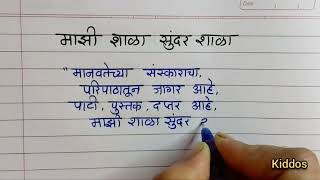 माझी शाळा सुंदर शाळा
"मानवतेच्या संस्काराचा,
परिपाठातून जागर आहे,
पाटी, पुस्तक, दप्तर आहे,
माझी शाळा सुंदर
Kiddos